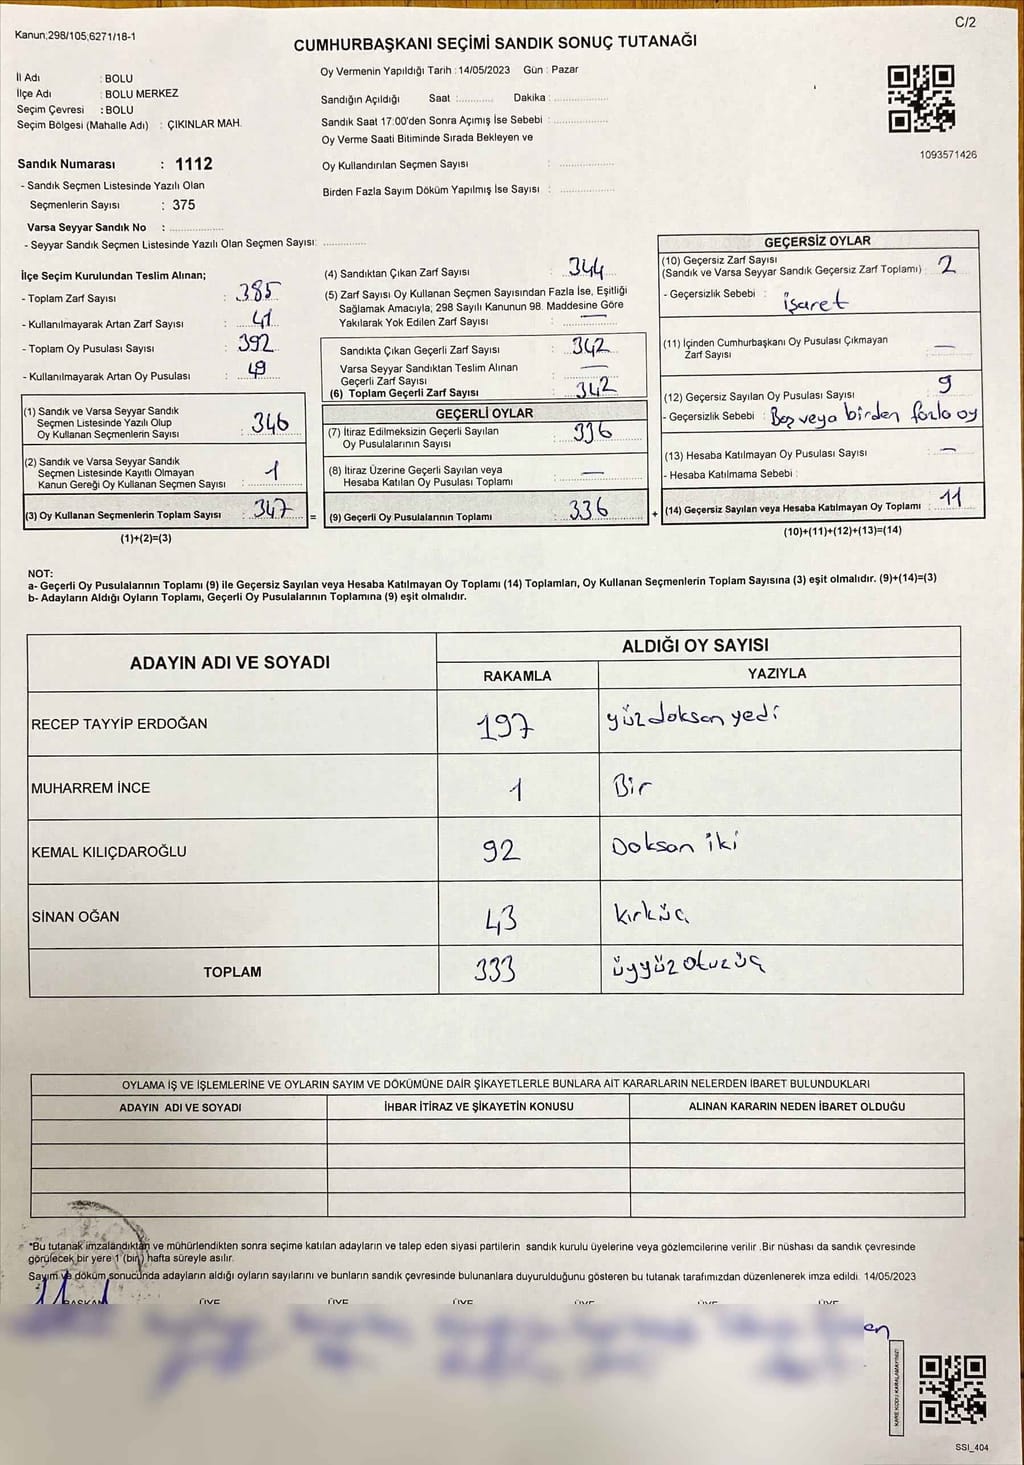 C/2
Kanun;298/105,6271/18-1
CUMHURBAŞKANI SEÇİMİ SANDIK SONUÇ TUTANAĞI
İl Adı : BOLU
İlçe Adı : BOLU MERKEZ
Seçim Çevresi : BOLU
Seçim Bölgesi (Mahalle Adı) : ÇIKINLAR MAH.
Sandık Numarası : 1112
- Sandık Seçmen Listesinde Yazılı Olan
Seçmenlerin Sayısı : 375
Varsa Seyyar Sandık No : ..............
- Seyyar Sandık Seçmen Listesinde Yazılı Olan Seçmen Sayısı: ............
Oy Vermenin Yapıldığı Tarih : 14/05/2023 Gün : Pazar
Sandığın Açıldığı Saat :........... Dakika :................
Sandık Saat 17:00'den Sonra Açımış İse Sebebi : ................
Oy Verme Saati Bitiminde Sırada Bekleyen ve
Oy Kullandırılan Seçmen Sayısı : ................
Birden Fazla Sayım Döküm Yapılmış İse Sayısı : ................
1093571426
İlçe Seçim Kurulundan Teslim Alınan;
- Toplam Zarf Sayısı : 385
- Kullanılmayarak Artan Zarf Sayısı : 41
- Toplam Oy Pusulası Sayısı : 392
- Kullanılmayarak Artan Oy Pusulası : 49
(1) Sandık ve Varsa Seyyar Sandık
Seçmen Listesinde Yazılı Olup
Oy Kullanan Seçmenlerin Sayısı : 346
(2) Sandık ve Varsa Seyyar Sandık
Seçmen Listesinde Kayıtlı Olmayan
Kanun Gereği Oy Kullanan Seçmen Sayısı : 1
(3) Oy Kullanan Seçmenlerin Toplam Sayısı : 347
(1)+(2)=(3)
(4) Sandıktan Çıkan Zarf Sayısı : 344
(5) Zarf Sayısı Oy Kullanan Seçmen Sayısından Fazla İse, Eşitliği
Sağlamak Amacıyla; 298 Sayılı Kanunun 98. Maddesine Göre
Yakılarak Yok Edilen Zarf Sayısı : —
Sandıkta Çıkan Geçerli Zarf Sayısı : 342
Varsa Seyyar Sandıktan Teslim Alınan
Geçerli Zarf Sayısı : —
(6) Toplam Geçerli Zarf Sayısı : 342
GEÇERLİ OYLAR
(7) İtiraz Edilmeksizin Geçerli Sayılan
Oy Pusulalarının Sayısı : 336
(8) İtiraz Üzerine Geçerli Sayılan veya
Hesaba Katılan Oy Pusulası Toplamı : —
= (9) Geçerli Oy Pusulalarının Toplamı : 336 +
GEÇERSİZ OYLAR
(10) Geçersiz Zarf Sayısı
(Sandık ve Varsa Seyyar Sandık Geçersiz Zarf Toplamı) : 2
- Geçersizlik Sebebi : işaret
(11) İçinden Cumhurbaşkanı Oy Pusulası Çıkmayan
Zarf Sayısı : —
(12) Geçersiz Sayılan Oy Pusulası Sayısı : 9
- Geçersizlik Sebebi : Boş veya birden fazla oy
(13) Hesaba Katılmayan Oy Pusulası Sayısı : —
- Hesaba Katılmama Sebebi :
(14) Geçersiz Sayılan veya Hesaba Katılmayan Oy Toplamı : 11
(10)+(11)+(12)+(13)=(14)
NOT:
a- Geçerli Oy Pusulalarının Toplamı (9) ile Geçersiz Sayılan veya Hesaba Katılmayan Oy Toplamı (14) Toplamları, Oy Kullanan Seçmenlerin Toplam Sayısına (3) eşit olmalıdır. (9)+(14)=(3)
b- Adayların Aldığı Oyların Toplamı, Geçerli Oy Pusulalarının Toplamına (9) eşit olmalıdır.
ADAYIN ADI VE SOYADI ALDIĞI OY SAYISI
RAKAMLA YAZIYLA
RECEP TAYYİP ERDOĞAN 197 yüzdoksan yedi
MUHARREM İNCE 1 Bir
KEMAL KILIÇDAROĞLU 92 Doksan iki
SİNAN OĞAN 43 kırküç
TOPLAM 333 üyyüz otuzüç
OYLAMA İŞ VE İŞLEMLERİNE VE OYLARIN SAYIM VE DÖKÜMÜNE DAİR ŞİKAYETLERLE BUNLARA AİT KARARLARIN NELERDEN İBARET BULUNDUKLARI
ADAYIN ADI VE SOYADI İHBAR İTİRAZ VE ŞİKAYETİN KONUSU ALINAN KARARIN NEDEN İBARET OLDUĞU
*Bu tutanak imzalandıktan ve mühürlendikten sonra seçime katılan adayların ve talep eden siyasi partilerin sandık kurulu üyelerine veya gözlemcilerine verilir .Bir nüshası da sandık çevresinde
görülecek bir yere 1 (bir) hafta süreyle asılır.
Sayım ve döküm sonucunda adayların aldığı oyların sayılarını ve bunların sandık çevresinde bulunanlara duyurulduğunu gösteren bu tutanak tarafımızdan düzenlenerek imza edildi. 14/05/2023
BAŞKAN ÜYE ÜYE ÜYE ÜYE ÜYE ÜYE
KARE KODU KARALAMAYINIZ!
SSI_404